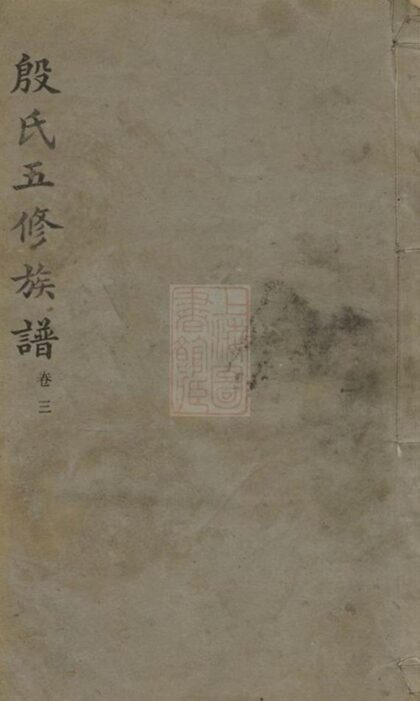 殷氏五修族譜
卷三
上海圖
書館藏